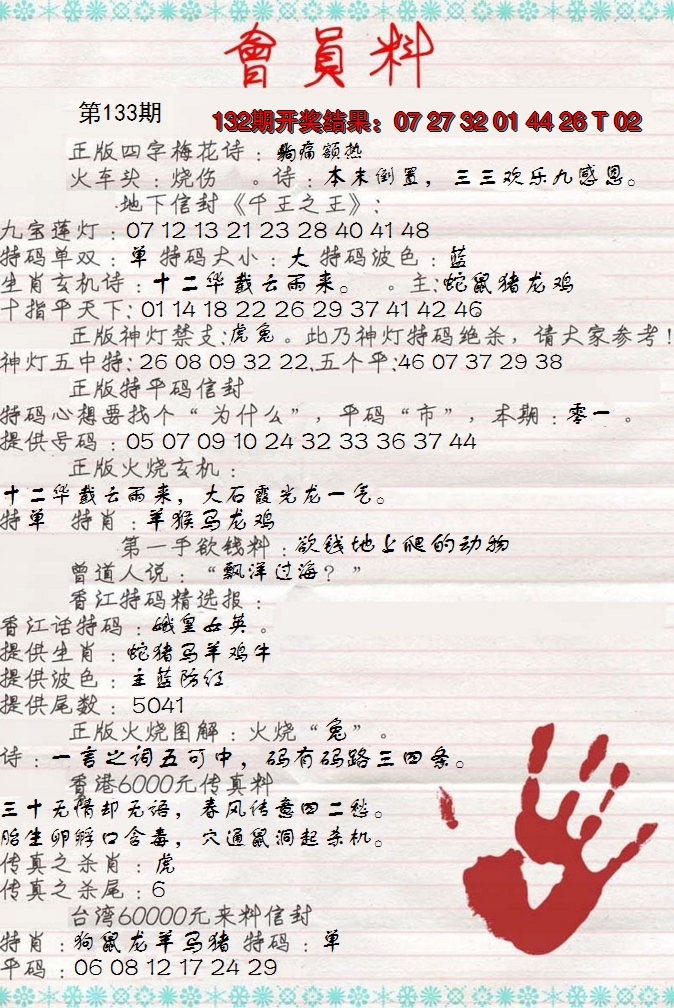 會員料
第133期
132期开奖结果：07 27 32 01 44 26 T 02
正版四字梅花诗：胸痛额热
火车头：烧伤 。诗：本末倒置，三三欢乐九感恩。
地下信封《千王之王》：
九宝莲灯：07 12 13 21 23 28 40 41 48
特码单双：单 特码大小：大 特码波色：蓝
生肖玄机诗：十二华截云雨来。 。主:蛇鼠猪龙鸡
十指平天下:01 14 18 22 26 29 37 41 42 46
正版神灯禁支:虎兔。此乃神灯特码绝杀，请大家参考!
神灯五中特:26 08 09 32 22.五个平:46 07 37 29 38
正版特平码信封
特码心想要找个“为什么”，平码“市”，本期：零一 。
提供号码：05 07 09 10 24 32 33 36 37 44
正版火烧玄机：
十二华截云雨来，大石霞光龙一气。
特单 特肖：羊猴马龙鸡
第一手欲钱料：欲钱地上爬的动物
曾道人说：“飘洋过海？”
香江特码精选报：
香江话特码：娥皇女英 。
提供生肖：蛇猪马羊鸡牛
提供波色：主蓝防红
提供尾数：5041
正版火烧图解：火烧“兔”。
诗：一言之词五可中，码有码路三四条。
香港6000元传真料
三十无情却无语，春风传意四二愁。
胎生卵孵口含毒，穴通鼠洞起杀机。
传真之杀肖：虎
传真之杀尾：6
台湾60000元来料信封
特肖：狗鼠龙羊马猪 特码：单
平码：06 08 12 17 24 29